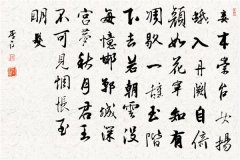 妾本叢台女揚
蛾入丹闕自倚
顏如花寧知有
凋歇一辭玉階
下去若朝雲沒
每憶邯鄲城深
宮夢秋月君王
不可見惆悵至
明發